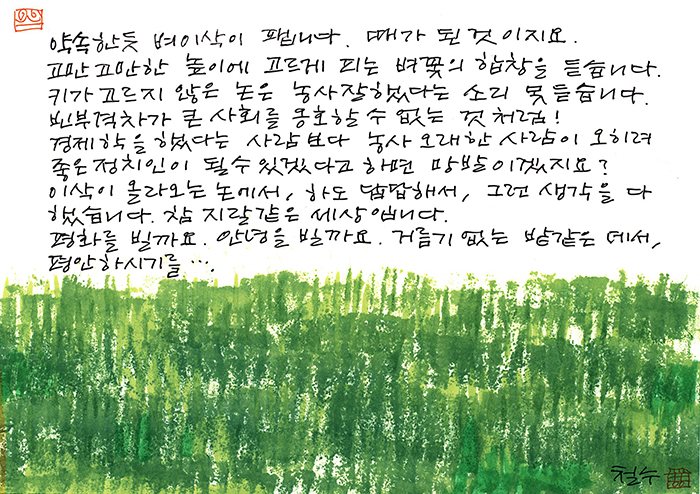 약속한듯 벼이삭이 팹니다. 때가 된 것이지요.
고만고만한 높이에 고르게 피는 벼꽃의 합창을 듣습니다.
키가 고르지 않은 논은 농사잘했다는 소리 못듣습니다.
빈부격차가 큰 사회를 옹호할 수 없는 것처럼!
경제학을 했다는 사람보다 농사 오래한 사람이 오히려
좋은 정치인이 될수있겠다고 하면 망발이겠지요?
이삭이 올라오는 논에서, 하도 답답해서, 그런 생각을 다
했습니다. 참 지랄같은 세상입니다.
평화를 빌까요. 안녕을 빌까요. 거름기 없는 밭같은 데서,
평안하시기를….
철수